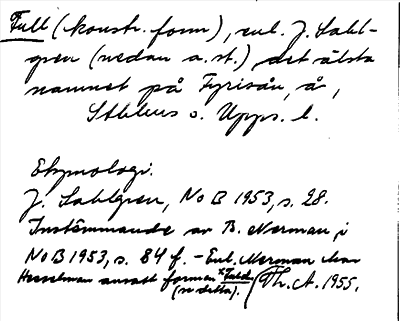 Full (konstr. form), enl. J. Sahl-
gren (nedan a. st.) det älsta
namnet på Fyrisån, å,
Sthlms o. Upps. l.
Etymologi:
J. Sahlgren, NoB 1953, s. 28.
Instämmande av B. Nerman, i
NoB 1953, s. 84 f. - Enl. Nerman har
Hesselman ansatt formen *Fuld
(se detta). Th. A. 1955.